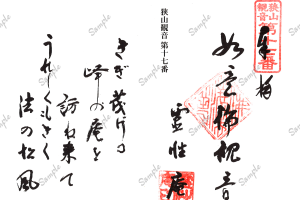 奉拝
狭山観音
第十七番
如意輪観音
霊性庵
狭山観音 第十七番
きぎ茂る
峰の庵を
訪ね来て
うれしくもきく
法の松風
Sample